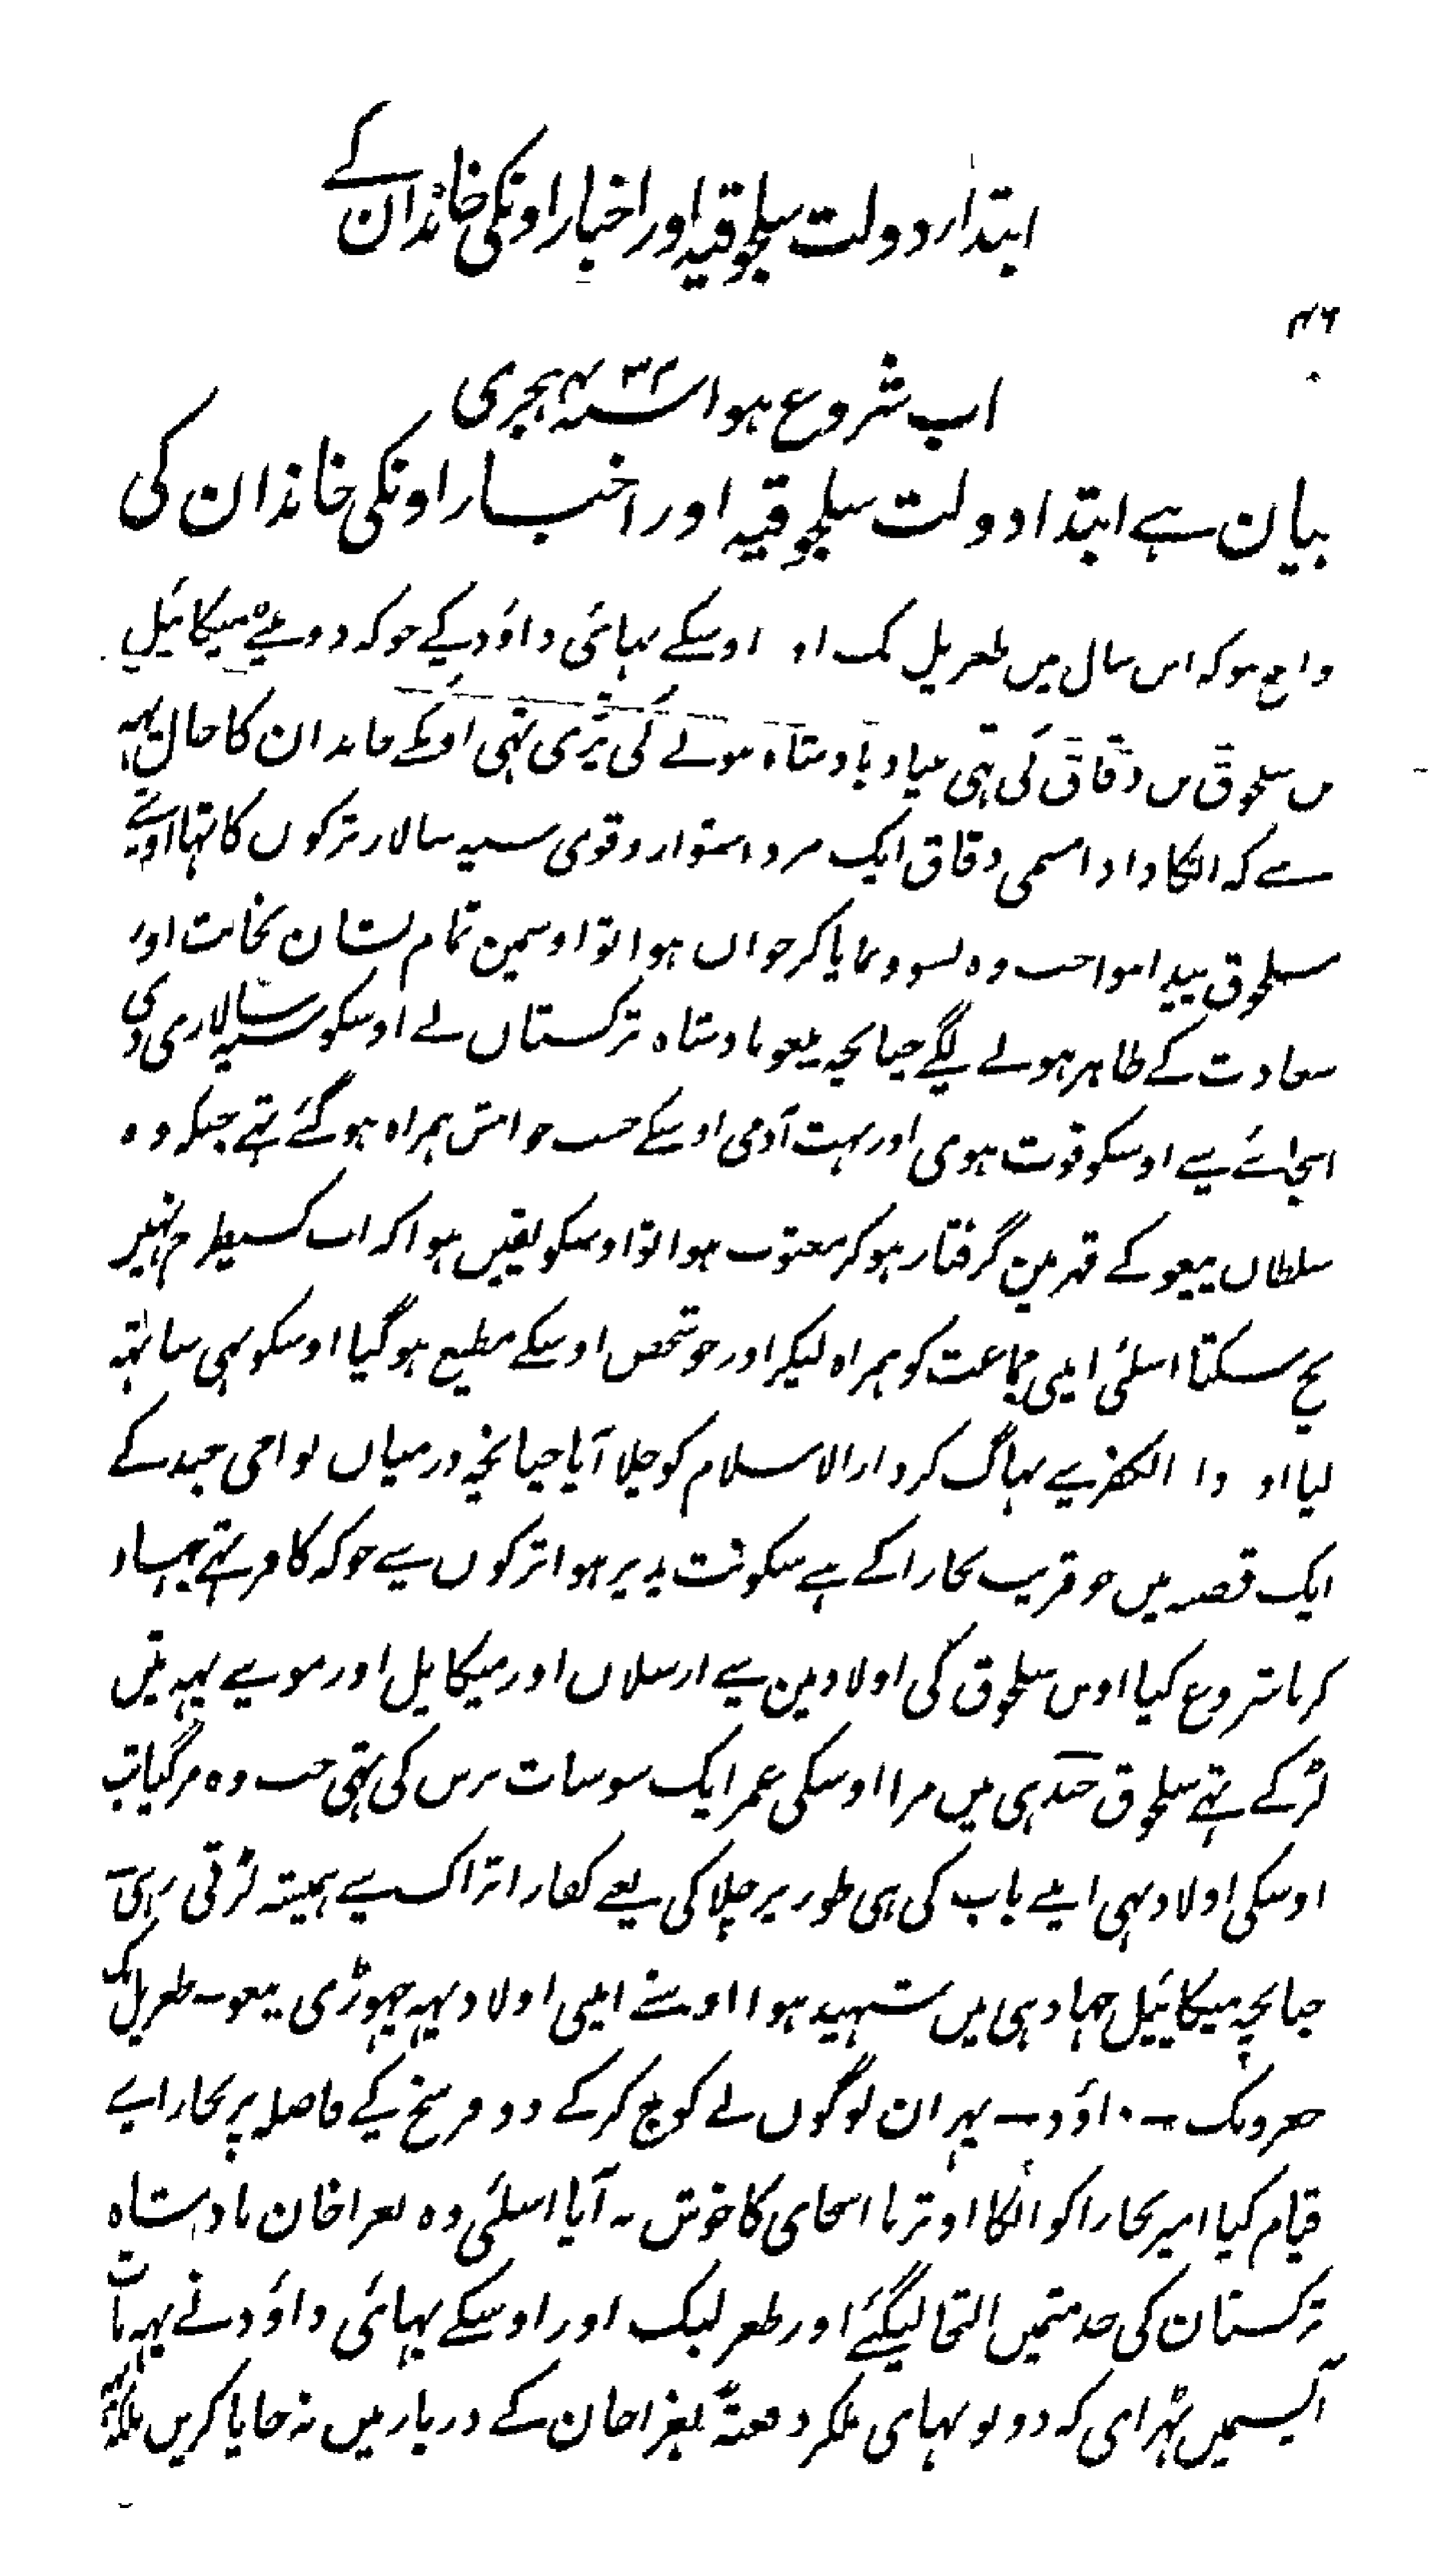 ابتداء دولت سلجوقیہ اور اخبار اونکی خاندان کے
۴۶
اب شروع ہوا سنہ ۴۳۲ ہجری
بیان ہے ابتداء دولت سلجوقیہ اور اخبار اونکی خاندان کی
واضح ہو کہ اس سال میں طغریل بک اور اوسکے بہائی داؤد کے جو کہ دو بیٹے میکائیل
بن سلجوق بن دقاق کی تہی بنیاد بادشاہ ہونے کی پڑی تہی اونکے خاندان کا حال یہہ
ہے کہ انکا دادا مسمی دقاق ایک مرد استوار و قوی سپہ سالار ترکوں کا تہا اوسے
سلجوق پیدا ہوا جب وہ نشو و نما پا کر جوان ہوا تو اوسمین تمام نشان نجابت اور
سعادت کے ظاہر ہونے لگے چنانچہ یبغو بادشاہ ترکستان نے اوسکو سپہ سالاری دی
اوسکو قوت ہوی اور بہت آدمی اوسکے حسب خواہش ہمراہ ہو گئے تہے جبکہ وہ
سلطان یبغو کے قہر مین گرفتار ہو کر معتوب ہوا تو اوسکو یقین ہوا کہ اب کسیطرح نہیں
بچ سکتا اسلئی اپنی جماعت کو ہمراہ لیکر اور جو شخص اوسکے مطیع ہو گیا اوسکو بہی ساتہہ
لیا اور دار الکفر سے بہاگ کر دار الاسلام کو چلا آیا چنانچہ درمیان نواحی جند کے
ایک قصبہ میں جو قریب بخارا کے ہے سکونت پذیر ہوا ترکوں سے جو کہ کافر تہے جہاد
کرنا شروع کیا اوس سلجوق کی اولاد مین سے ارسلان اور میکایل اور موسے یہہ تین
لڑکے تہے سلجوق جند ہی میں مرا اوسکی عمر ایک سو سات برس کی تہی جب وہ مر گیا تب
اوسکی اولاد بہی اپنے باپ کی ہی طور پر چلا کی یعے کفار اتراک سے ہمیشہ لڑتی رہی
چنانچہ میکائیل جہاد ہی میں شہید ہوا اوسنے اپنی اولاد یہہ چہوڑی یبغو ۔ طغریل بک
جعروبک ۔ داؤد ۔ پہر ان لوگوں نے کوچ کر کے دو فرسخ کے فاصلہ پر بخارا سے
قیام کیا امیر بخارا کو انکا اوترنا اسجای کا خوش نہ آیا اسلئی وہ بغرا خان بادشاہ
ترکستان کی خدمتمیں التجا لیگئے اور طغرلبک اور اوسکے بہائی داؤد نے یہہ بات
آپسمیں ٹہرای کہ دونو بہای ملکر دفعتہً بغرا خان کے دربار میں نہ جایا کریں بلکہ